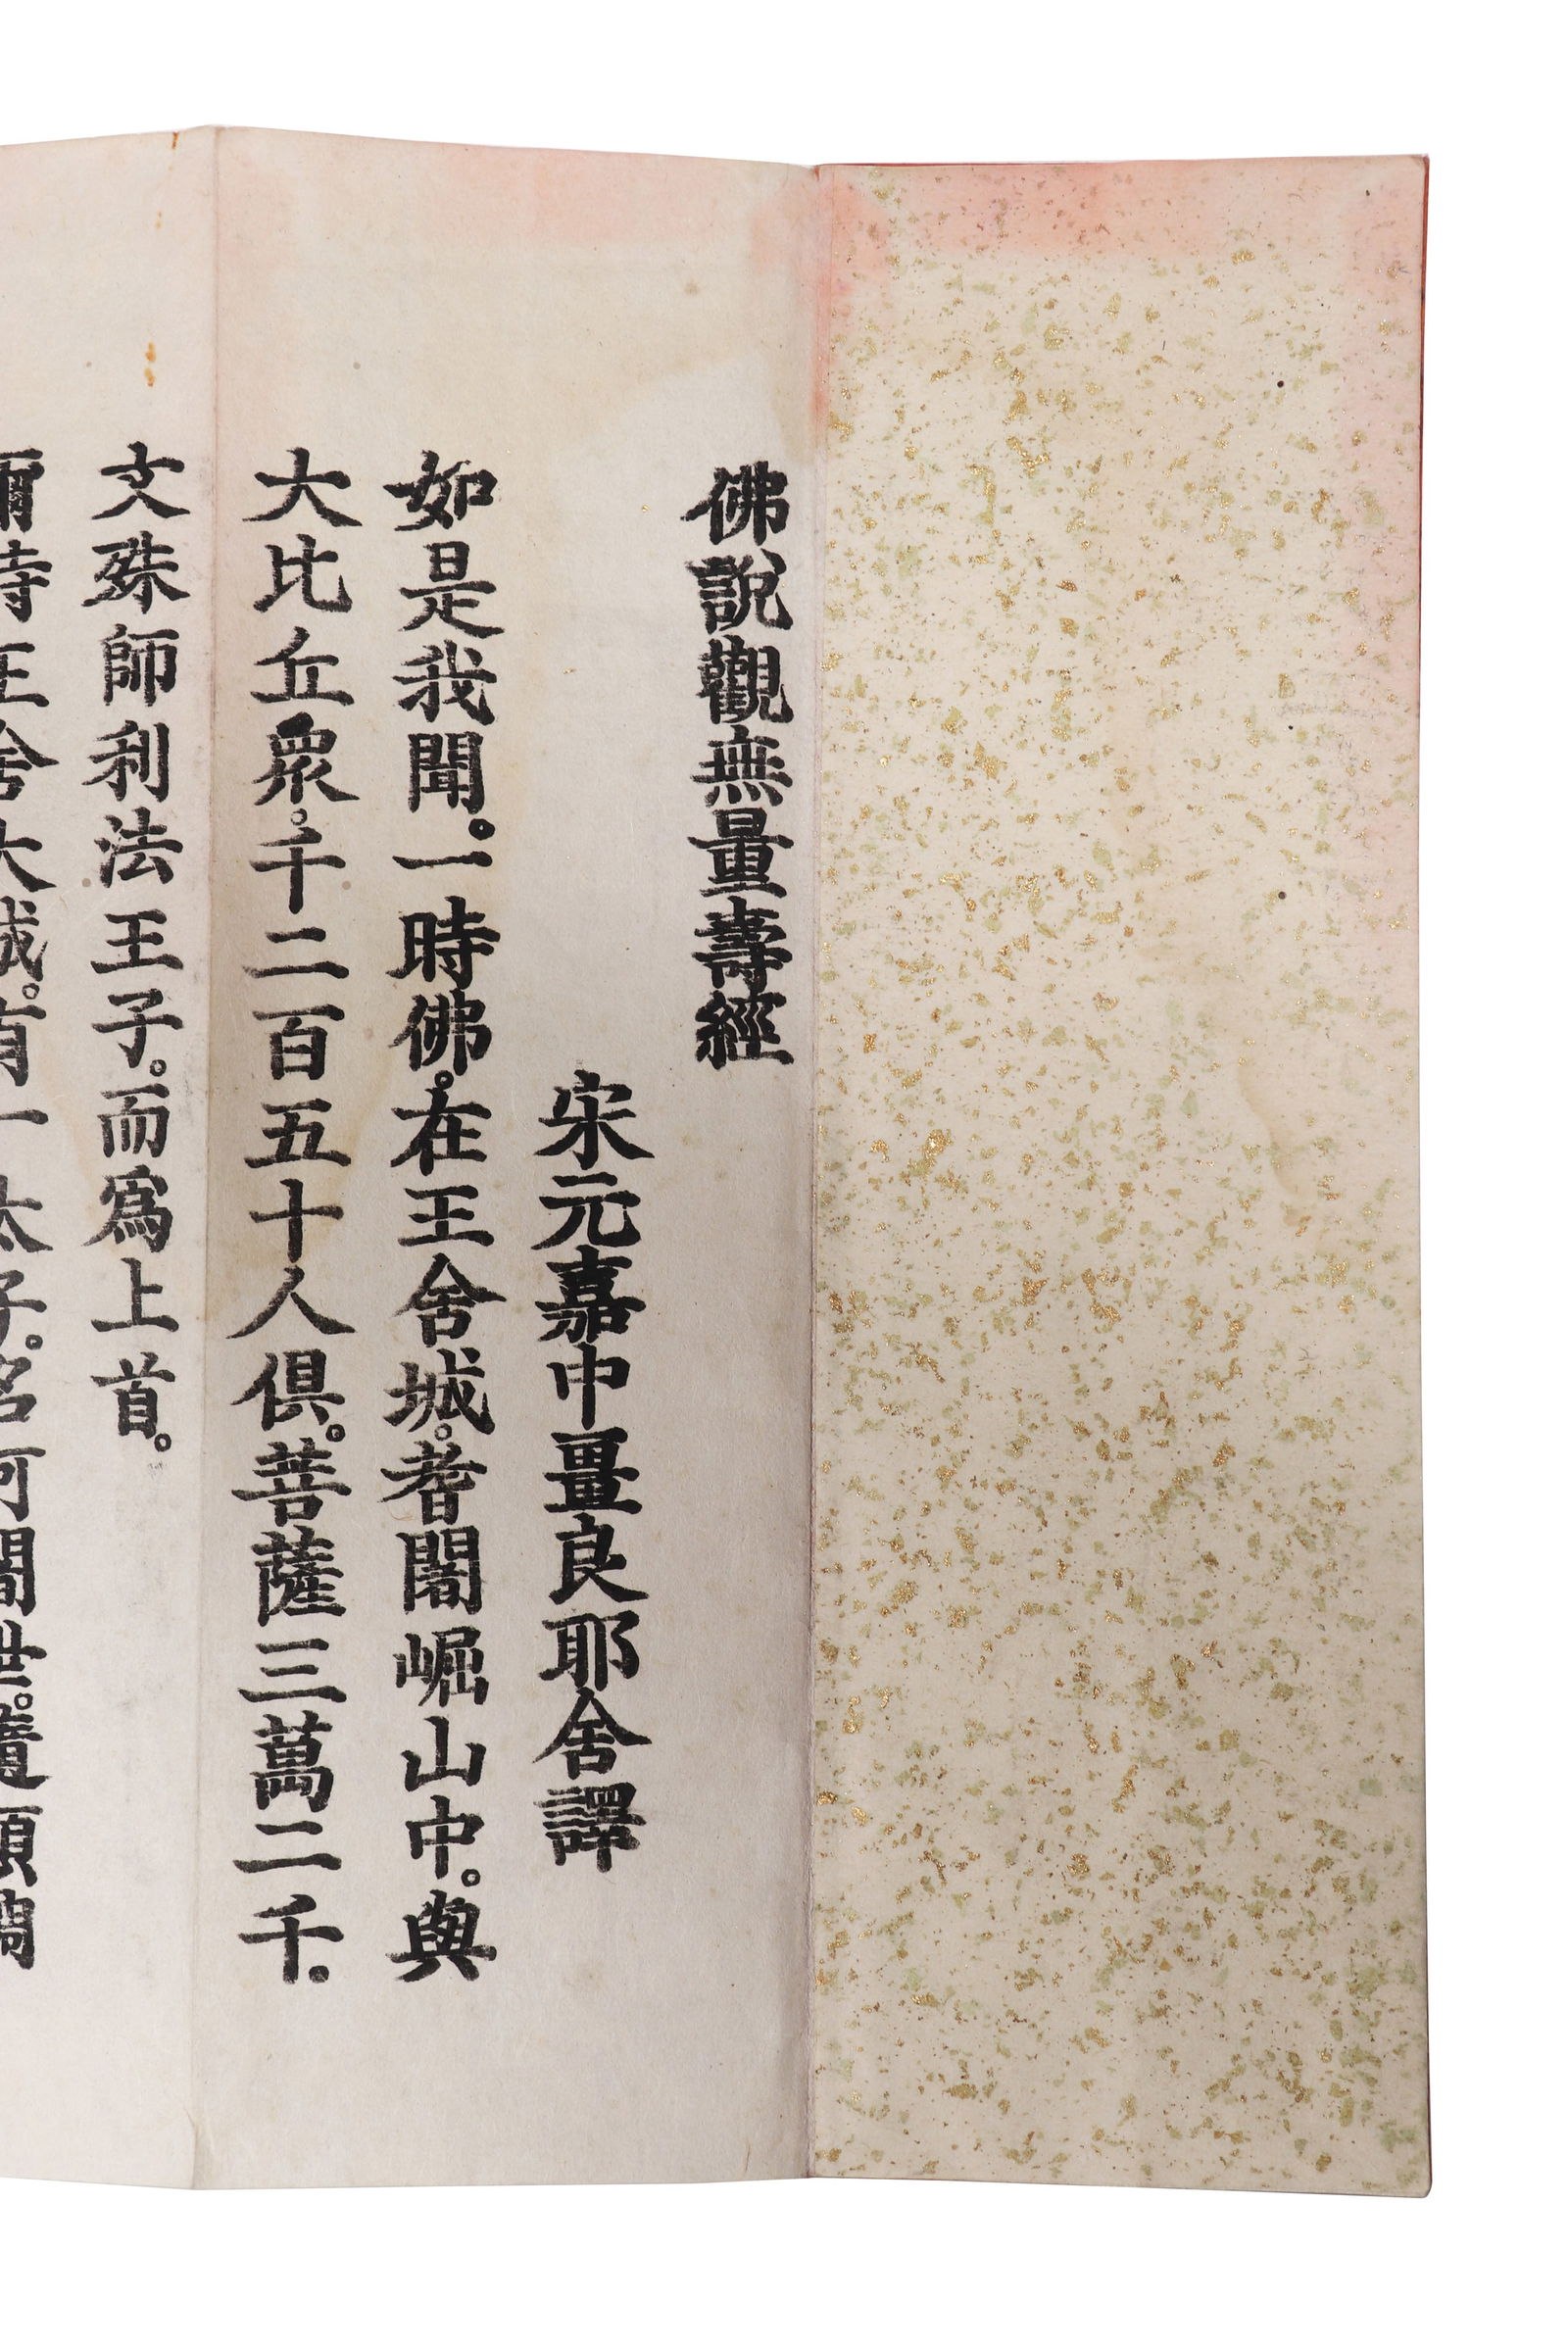 佛說觀無量壽經
宋元嘉中畺良耶舍譯
如是我聞。一時佛。在王舍城。耆闍崛山中。與
大比丘衆。千二百五十人俱。菩薩三萬二千。
文殊師利法王子。而爲上首。
爾時王舍大城。有一太子。名阿闍世。隨順調